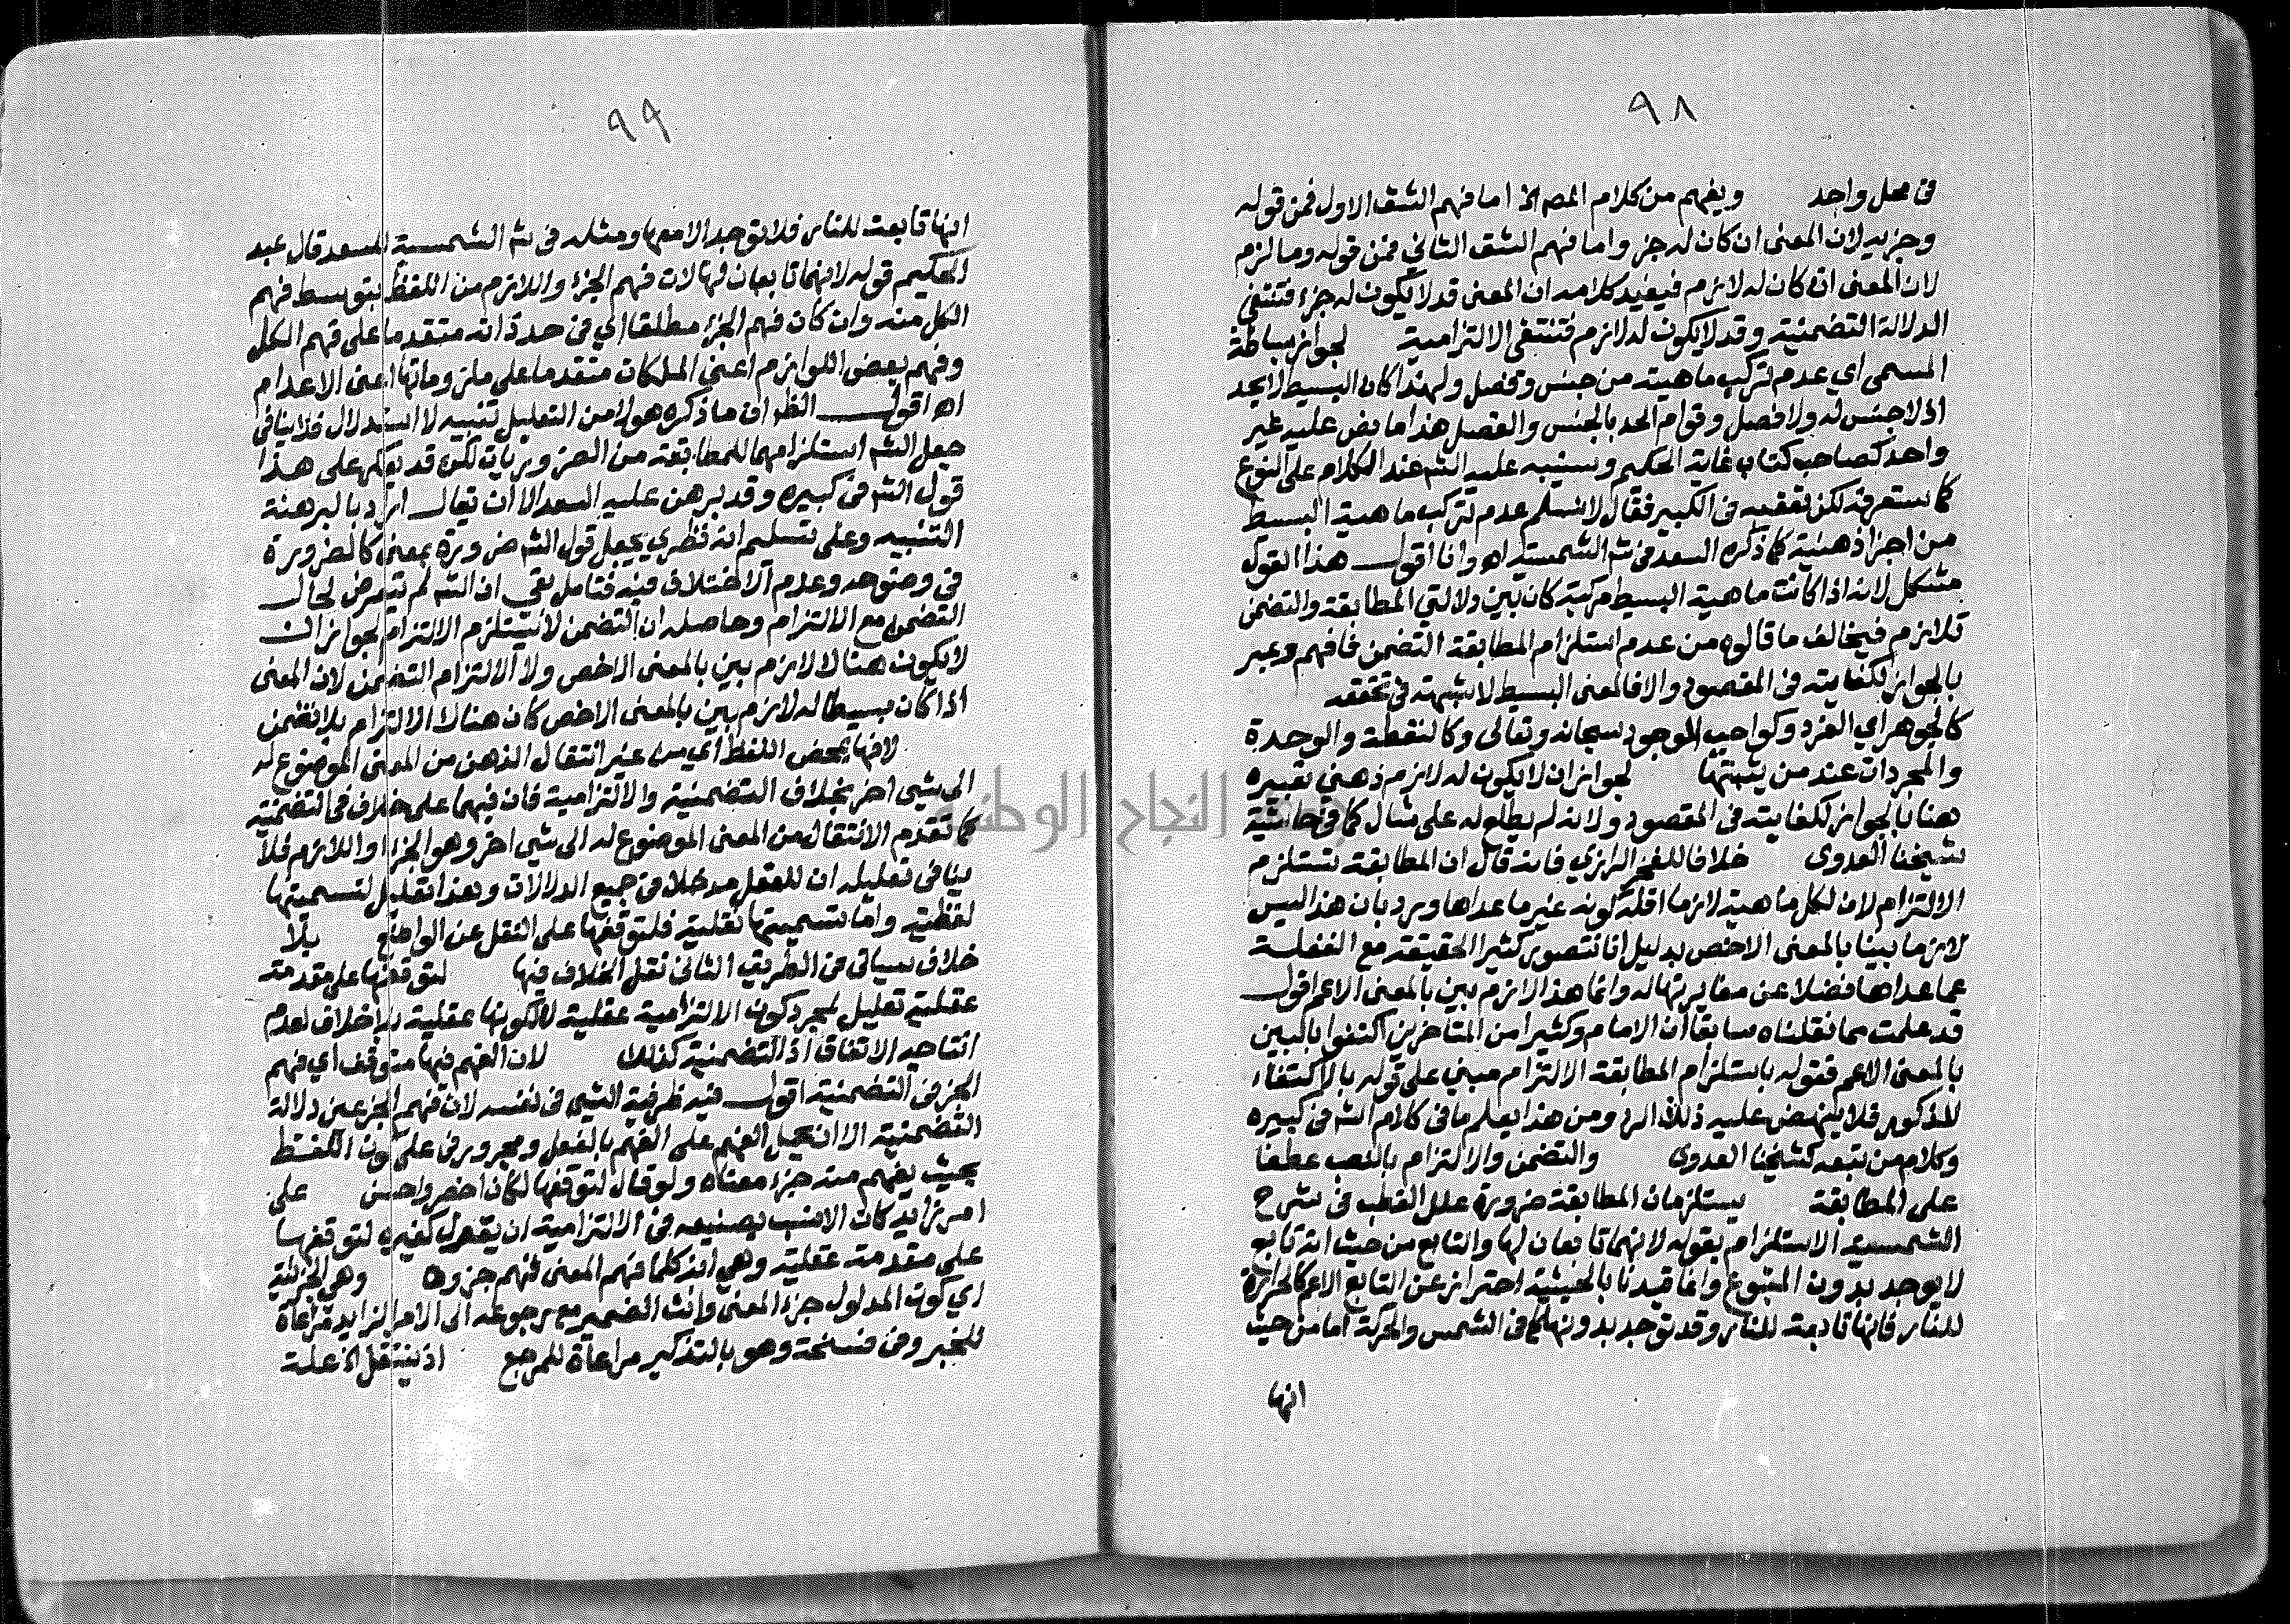 ٩٨
فى محل واحد ويفهم من كلام المص الخ اما فهم الشق الاول فمن قوله
وجزيه لان المعنى ان كان له جز واما فهم الشق الثاني فمن قوله وما لزم
لان المعنى ان كان له لازم فيفيد كلامه ان المعنى قد لا يكون له جزء فتنتفي
الدلالة التضمنية وقد لا يكون له لازم فتنتفى الالتزامية لجواز بساطة
المسمى اي عدم تركب ماهيته من جنس وفصل ولهذا كان البسيط لا يحد
اذ لا جنس له ولا فصل وقوام الحد بالجنس والفصل هذا ما نص عليه غير
واحد كصاحب كتاب غاية الحكيم وسينبه عليه الش عند الكلام على النوع
كما ستعرفه لكن تعقبه فى الكبير فقال لا نسلم عدم تركب ماهية البسيط
من اجزا ذهنية كما ذكره السعد فى ش الشمسية اه وانا اقول هذا القول
مشكل لانه اذا كانت ماهية البسيط مركبة كان بين دلالتي المطابقة والتضمن
تلازم فيخالف ما قالوه من عدم استلزام المطابقة التضمن فافهم وعبر
بالجواز لكفايته فى المقصود والا فالمعنى البسيط لا شبهة فى تحققه
كالجوهر اي الفرد وكواجب الوجود سبحانه وتعالى وكالنقطة والوحدة
والمجردات عند من يثبتها لجواز ان لا يكون له لازم ذهني تعبيره
هنا بالجواز لكفايته فى المقصود ولانه لم يطلع له على مثال كما فى حاشية
شيخنا العدوى خلافا للفخر الرازي فانه قال ان المطابقة تستلزم
الالتزام لان لكل ماهية لازما اقله كونه غير ما عداها ورد بان هذا ليس
لازما بينا بالمعنى الاخص بدليل انا نتصور كثيرا الحقيقة مع الغفلة
عما عداها فضلا عن مغايرتها له وانما هذا لازم بين بالمعنى الاعم اقول
قد علمت مما نقلناه سابقا ان الامام وكثيرا من المتاخرين اكتفوا بالبين
بالمعنى الاعم فقوله باستلزام المطابقة الالتزام مبني على قوله بالاكتفاء
المذكور فلا ينهض عليه ذلك الرد ومن هذا يعلم ما فى كلام الش فى كبيره
وكلام من تبعه كشيخنا العدوى والتضمن والالتزام بالنصب عطفا
على المطابقة يستلزمان المطابقة ضرورة علل القطب فى شرح
الشمسية الاستلزام بقوله لانهما تابعان لها والتابع من حيث انه تابع
لا يوجد بدون المتبوع وانما قيدنا بالحيثية احترازا عن التابع الاعم كالحرارة
للنار فانها تابعة للنار وقد توجد بدونها كما فى الشمس والحركة اما من حيث
انها
٩٩
انها تابعة للنار فلا توجد الا معها ومثله فى ش الشمسية للسعد قال عبد
الحكيم قوله لانهما تابعان لها لان فهم الجزء واللازم من اللفظ بتوسط فهم
الكل منه وان كان فهم الجزء مطلقا اي فى حد ذاته متقدما على فهم الكل
وفهم بعض اللوازم اعني الملكات متقدما على ملزوماتها اعنى الاعدام
اه اقول الظ ان ما ذكره هولا من التعليل تنبيه لا استدلال فلا ينافى
جعل الش استلزامهما للمطابقة من الضروريات لكن قد يعكر على هذا
قول الش فى كبيره وقد برهن عليه السعد الا ان يقال اراد بالبرهنة
التنبيه وعلى تسليم انه نظري يجعل قول الش ضرورة بمعنى كالضرورة
فى وضوحه وعدم الاختلاف فيه فتامل بقى ان الش لم يتعرض لحال
التضمن مع الالتزام وحاصله ان التضمن لا يستلزم الالتزام لجواز ان
لا يكون هنالا لازم بين بالمعنى الاخص ولا الالتزام التضمن لان المعنى
اذا كان بسيطا له لازم بين بالمعنى الاخص كان هنالا الالتزام بلا تضمن
لانها بمحض اللفظ اي من غير انتقال الذهن من المعنى الموضوع له
الى شيى اخر بخلاف التضمنية والالتزامية فان فيهما على خلاف فى التضمنية
كما تقدم الانتقال من المعنى الموضوع له الى شيى اخر وهو الجزء او اللازم فلا
ينافى تعليله ان للعقل مدخلا فى جميع الدلالات وهذا تعليل لتسميتها
لفظية واما تسميتها نقلية فلتوقفها على النقل عن الواضع بلا
خلاف سياتى فى الطريق الثانى نقل الخلاف فيها لتوقفها على مقدمة
عقلية تعليل لمجرد كون الالتزامية عقلية لا لكونها عقلية بلا خلاف لعدم
انتاجه الاتفاق اذ التضمنية كذلك لان الفهم فيها متوقف اي فهم
الجز فى التضمنية اقول فيه ظرفية الشيى فى نفسه لان فهم الجزء عين دلالة
التضمنية الا ان يحمل الفهم على الفهم بالفعل ومجرور فى على كون اللفظ
بحيث يفهم منه جزء معناه ولو قال لتوقفها لكان اخصر واحسن على
امر زايد كان الانسب بصنيعه فى الالتزامية ان يقول كغيره لتوقفها
على مقدمة عقلية وهي انه كلما فهم المعنى فهم جزوه وهى الجزئية
اي كون المدلول جزء المعنى وانث الضمير مع رجوعه الى الامر الزايد مراعاة
للخبر وفى نسخة وهو بالتذكير مراعاة للمرجع اذ ينتقل الخ علة
جامعة النجاح الوطنية